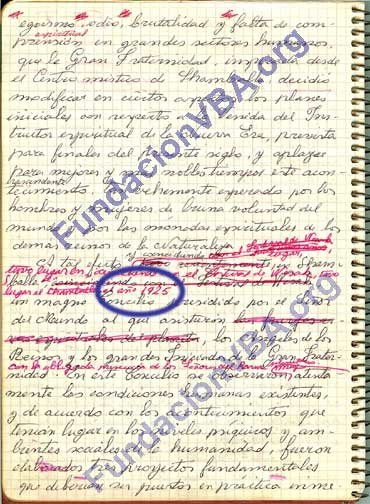 egoísmo, odio, brutalidad y falta de com-
prensión espiritual en grandes sectores humanos,
que la Gran Fraternidad, desde
el Centro místico de Shamballa, decidió
modificar en ciertos los planes
iniciales con respecto a venida del Ins-
tructor espiritual de la Nueva Era, prevista
para finales del siglo, y aplazar
para mejores y más nobles tiempos este acon-
tecimiento, esperado por los
hombres y mujeres de buena voluntad del
mundo por las mónadas espirituales de los
demás reinos de la Naturaleza
A tal efecto
tuvo lugar en
balla
lugar el año 1925
un magno concilio presidido por el Señor
del Mundo al que asistieron
del planeta, los Ángeles de los
Reinos y los grandes Iniciados de la Gran Frater-
con la obligada de los Señores del Karma
nidad. En este Concilio se observaron atenta
mente las condiciones humanas existentes,
y de acuerdo con los acontecimientos que
tenían lugar en los niveles psíquicos y am-
bientes sociales de la humanidad, fueron
elaborados proyectos fundamentales
que debían ser puestos en práctica inme-
FundacionVBA.org
FundacionVBA.org
FundacionVBA.org
FundacionVBA.org